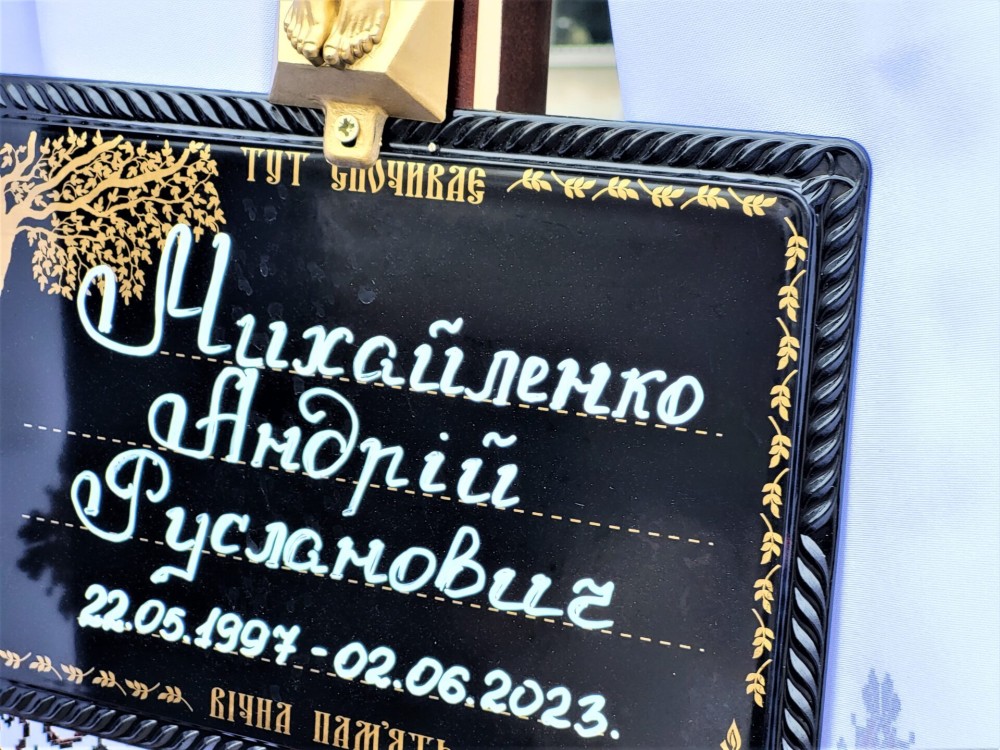 ТУТ СПОЧИВАЄ
Михайленко
Андрій
Русланович
22.05.1997 - 02.06.2023.
ВІЧНА ПАМ'ЯТЬ